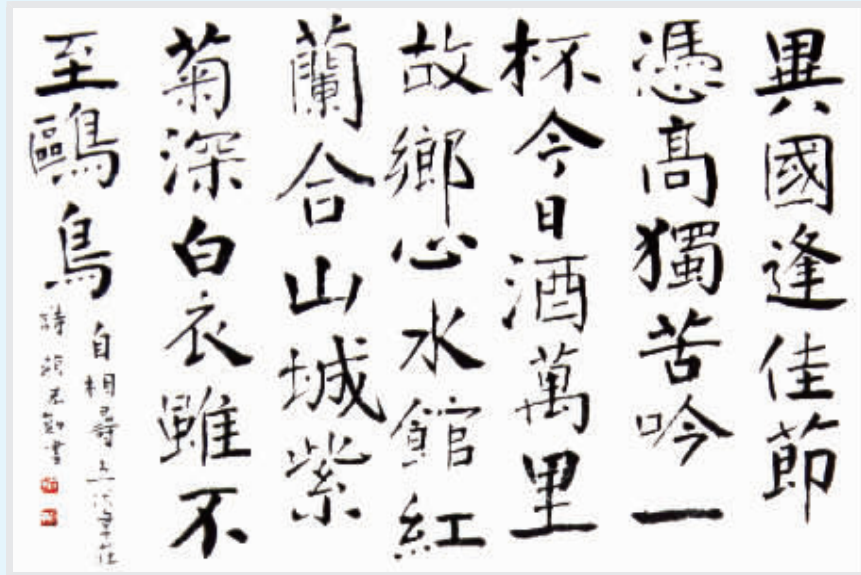 異國逢佳節
憑高獨苦吟一
杯今日酒萬里
故鄉心水館紅
蘭合山城紫
菊深白衣雖不
至鷗鳥
自相尋
詩 書